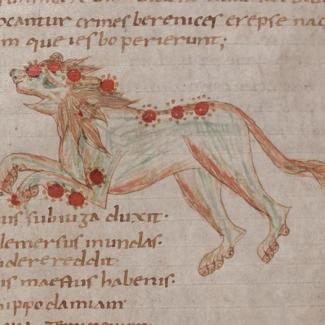 ocantur crines berenices erepse nac
m que iesbo perierunt;
us subiuga duxit·
demersus inundas·
dere reddit·
is maestus habenis·
hippodamiam